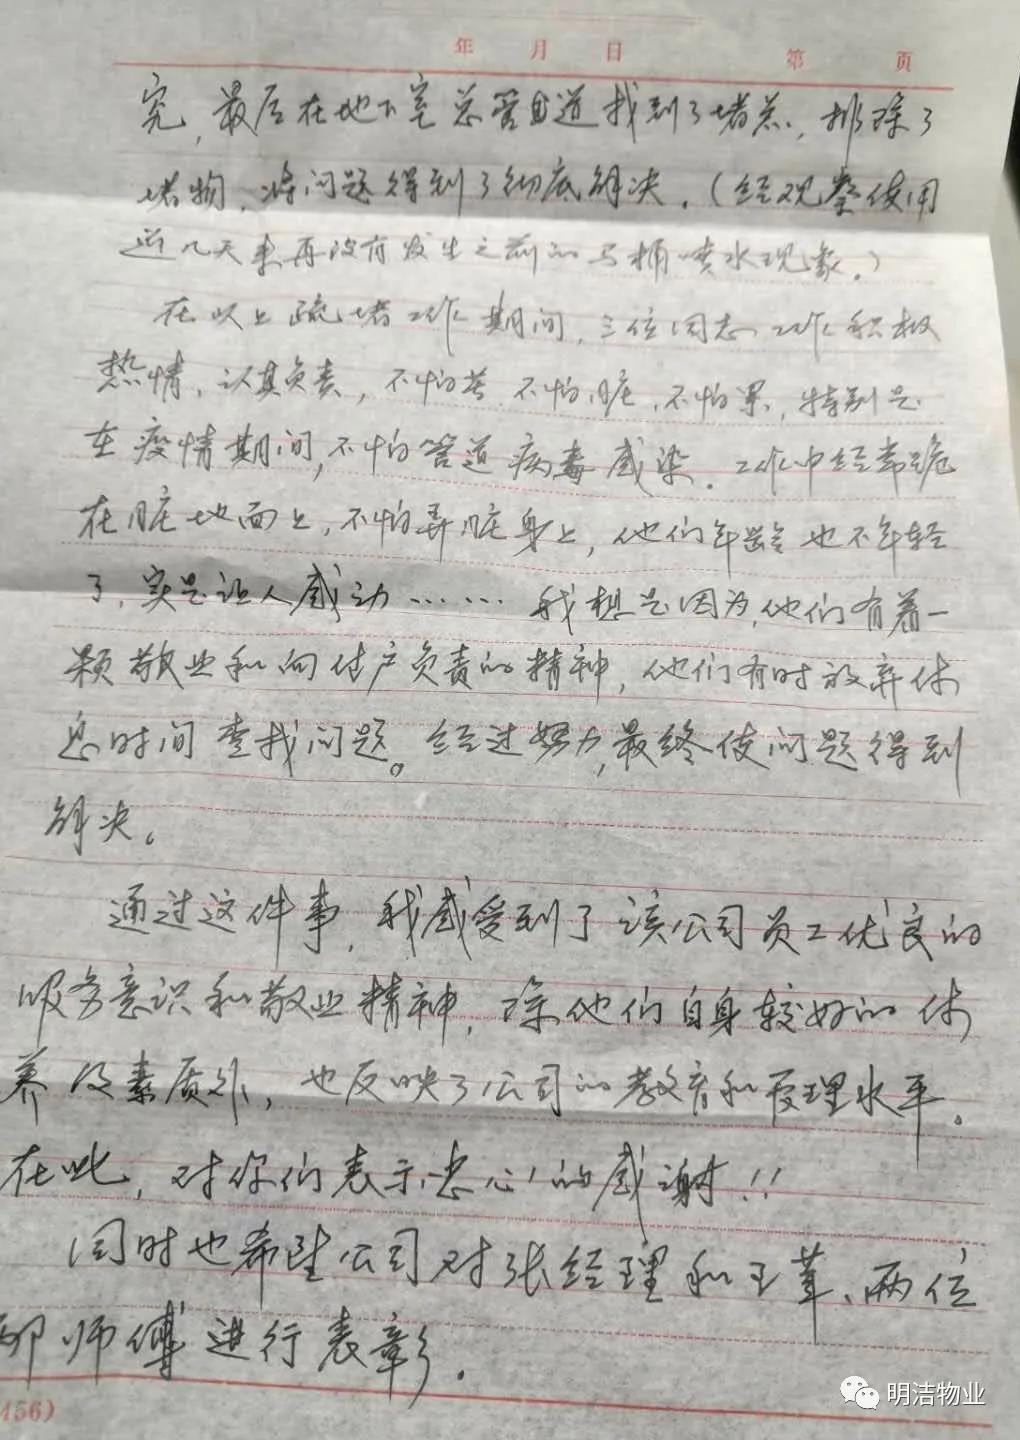 年 月 日 第 页
究,最后在地下室总管道找到了堵点,排除了
堵物,将问题得到了彻底解决。(经观察使用
近几天来再没有发生之前的马桶喷水现象。)
在以上疏堵工作期间,三位同志工作积极
热情,认真负责,不怕苦、不怕脏、不怕累,特别是
在疫情期间,不怕管道病毒感染。工作中经常跪
在脏地面上,不怕弄脏身上,他们年龄也不年轻
了,实是让人感动……我想是因为,他们有着一
颗敬业和向住户负责的精神,他们有时放弃休
息时间查找问题。经过努力,最终使问题得到
解决。
通过这件事,我感受到了该公司员工优良的
服务意识和敬业精神,除他们自身较好的休
养及素质外,也反映了公司的教育和管理水平。
在此,对你们表示忠心的感谢!!
同时也希望公司对张经理和王、两位
邢师傅进行表彰。
156)
明洁物业